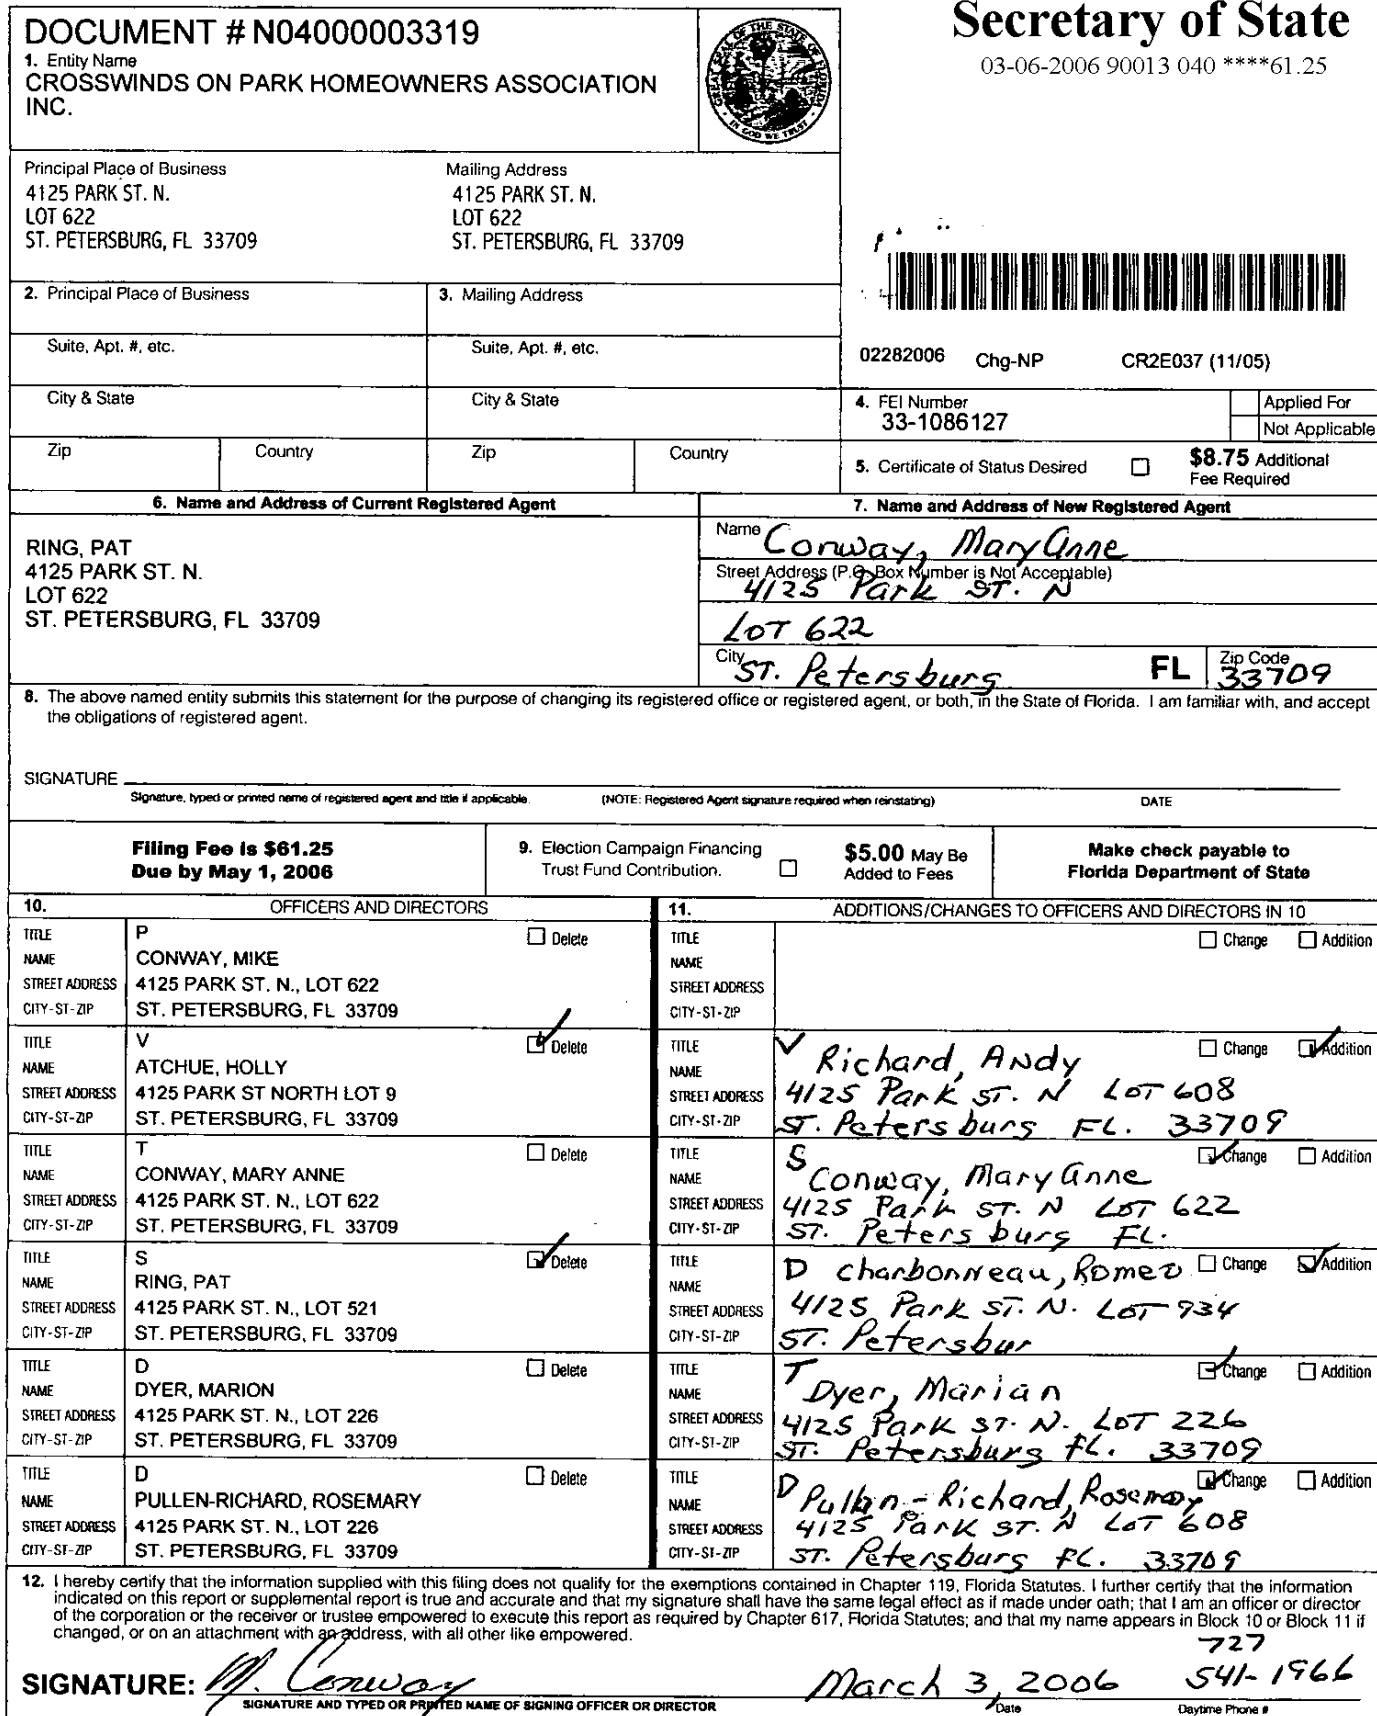 Secretary of State
03-06-2006 90013 040 ****61.25
DOCUMENT # N04000003319
1. Entity Name
CROSSWINDS ON PARK HOMEOWNERS ASSOCIATION
INC.
GREAT SEAL OF THE STATE OF FLORIDA
IN GOD WE TRUST
Principal Place of Business
4125 PARK ST. N.
LOT 622
ST. PETERSBURG, FL 33709
Mailing Address
4125 PARK ST. N.
LOT 622
ST. PETERSBURG, FL 33709
2. Principal Place of Business
3. Mailing Address
Suite, Apt. #, etc.
Suite, Apt. #, etc.
City & State
City & State
Zip Country
Zip Country
02282006 Chg-NP CR2E037 (11/05)
4. FEI Number
33-1086127
Applied For
Not Applicable
5. Certificate of Status Desired
$8.75 Additional
Fee Required
6. Name and Address of Current Registered Agent
RING, PAT
4125 PARK ST. N.
LOT 622
ST. PETERSBURG, FL 33709
7. Name and Address of New Registered Agent
Name Conway, Mary Anne
Street Address (P.O. Box Number is Not Acceptable)
4125 Park ST. N
LOT 622
City ST. Petersburg FL Zip Code 33709
8. The above named entity submits this statement for the purpose of changing its registered office or registered agent, or both, in the State of Florida. I am familiar with, and accept
the obligations of registered agent.
SIGNATURE
Signature, typed or printed name of registered agent and title if applicable. (NOTE: Registered Agent signature required when reinstating) DATE
Filing Fee is $61.25
Due by May 1, 2006
9. Election Campaign Financing
Trust Fund Contribution.
$5.00 May Be
Added to Fees
Make check payable to
Florida Department of State
10. OFFICERS AND DIRECTORS
11. ADDITIONS/CHANGES TO OFFICERS AND DIRECTORS IN 10
TITLE P Delete
NAME CONWAY, MIKE
STREET ADDRESS 4125 PARK ST. N., LOT 622
CITY-ST-ZIP ST. PETERSBURG, FL 33709
TITLE Change Addition
NAME
STREET ADDRESS
CITY-ST-ZIP
TITLE V Delete
NAME ATCHUE, HOLLY
STREET ADDRESS 4125 PARK ST NORTH LOT 9
CITY-ST-ZIP ST. PETERSBURG, FL 33709
TITLE V Change Addition
NAME Richard, Andy
STREET ADDRESS 4125 Park ST. N LOT 608
CITY-ST-ZIP ST. Petersburg FL. 33709
TITLE T Delete
NAME CONWAY, MARY ANNE
STREET ADDRESS 4125 PARK ST. N., LOT 622
CITY-ST-ZIP ST. PETERSBURG, FL 33709
TITLE S Change Addition
NAME Conway, Mary Anne
STREET ADDRESS 4125 Park ST. N LOT 622
CITY-ST-ZIP ST. Petersburg FL.
TITLE S Delete
NAME RING, PAT
STREET ADDRESS 4125 PARK ST. N., LOT 521
CITY-ST-ZIP ST. PETERSBURG, FL 33709
TITLE D Charbonneau, Romeo Change Addition
NAME
STREET ADDRESS 4125 Park ST. N. LOT 934
CITY-ST-ZIP ST. Petersbur
TITLE D Delete
NAME DYER, MARION
STREET ADDRESS 4125 PARK ST. N., LOT 226
CITY-ST-ZIP ST. PETERSBURG, FL 33709
TITLE T Change Addition
NAME Dyer, Marian
STREET ADDRESS 4125 Park ST. N. LOT 226
CITY-ST-ZIP ST. Petersburg FL. 33709
TITLE D Delete
NAME PULLEN-RICHARD, ROSEMARY
STREET ADDRESS 4125 PARK ST. N., LOT 226
CITY-ST-ZIP ST. PETERSBURG, FL 33709
TITLE D Change Addition
NAME Pullen-Richard, Rosemary
STREET ADDRESS 4125 Park ST. N LOT 608
CITY-ST-ZIP ST. Petersburg FL. 33709
12. I hereby certify that the information supplied with this filing does not qualify for the exemptions contained in Chapter 119, Florida Statutes. I further certify that the information
indicated on this report or supplemental report is true and accurate and that my signature shall have the same legal effect as if made under oath; that I am an officer or director
of the corporation or the receiver or trustee empowered to execute this report as required by Chapter 617, Florida Statutes; and that my name appears in Block 10 or Block 11 if
changed, or on an attachment with an address, with all other like empowered.
727
SIGNATURE: M. Conway March 3, 2006 541-1966
SIGNATURE AND TYPED OR PRINTED NAME OF SIGNING OFFICER OR DIRECTOR Date Daytime Phone #